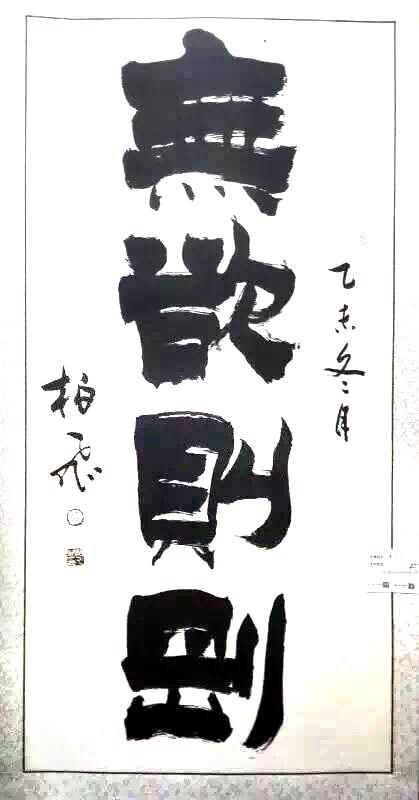 無欲則剛
乙未冬二月
柏飛